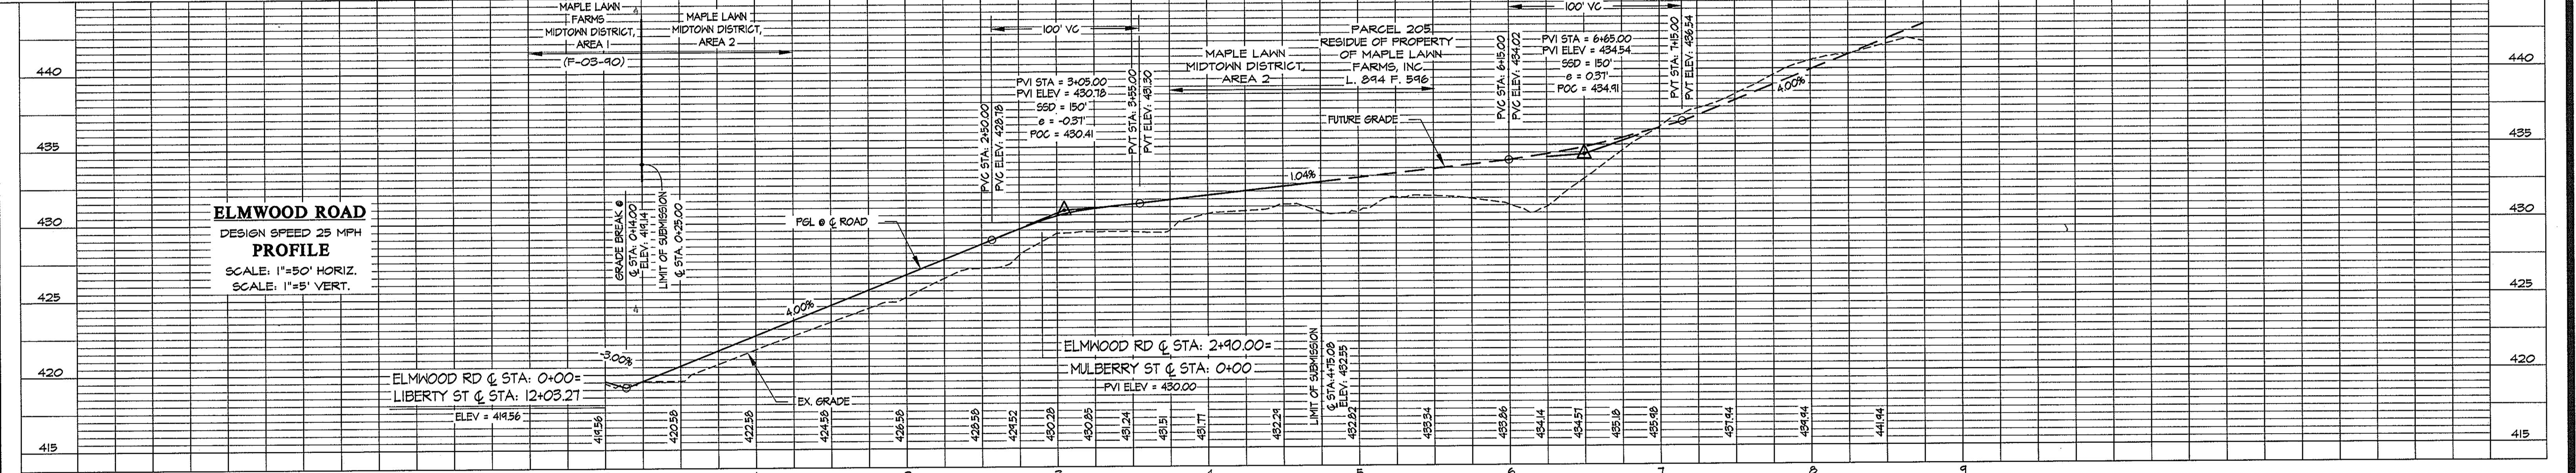 ELMWOOD ROAD
DESIGN SPEED 25 MPH
PROFILE
SCALE: 1"=50' HORIZ.
SCALE: 1"=5' VERT.
440
435
430
425
420
415
MAPLE LAWN
FARMS
MIDTOWN DISTRICT,
AREA 1
(F-03-90)
MAPLE LAWN
MIDTOWN DISTRICT,
AREA 2
GRADE BREAK @
℄ STA: 0+14.00
ELEV: 419.14
LIMIT OF SUBMISSION
℄ STA. 0+25.00
-3.00%
4.00%
ELMWOOD RD ℄ STA: 0+00=
LIBERTY ST ℄ STA: 12+03.27
ELEV = 419.56
EX. GRADE
PGL @ ℄ ROAD
100' VC
PVI STA = 3+05.00
PVI ELEV = 430.78
SSD = 150'
e = -0.37'
POC = 430.41
PVC STA: 2+50.00
PVC ELEV: 428.78
PVT STA: 3+55.00
PVT ELEV: 431.30
MAPLE LAWN
MIDTOWN DISTRICT,
AREA 2
PARCEL 205
RESIDUE OF PROPERTY
OF MAPLE LAWN
FARMS, INC.
L. 894 F. 596
FUTURE GRADE
1.04%
ELMWOOD RD ℄ STA: 2+90.00=
MULBERRY ST ℄ STA: 0+00
PVI ELEV = 430.00
LIMIT OF SUBMISSION
℄ STA: 4+75.08
ELEV: 432.55
100' VC
PVC STA: 6+15.00
PVC ELEV: 434.02
PVI STA = 6+65.00
PVI ELEV = 434.54
SSD = 150'
e = 0.37'
POC = 434.91
PVT STA: 7+15.00
PVT ELEV: 436.54
4.00%
419.56
420.58
422.58
424.58
426.58
428.58
429.52
430.28
430.85
431.24
431.51
431.77
432.29
432.82
433.34
433.86
434.14
434.57
435.18
435.98
437.94
439.94
441.94
440
435
430
425
420
415